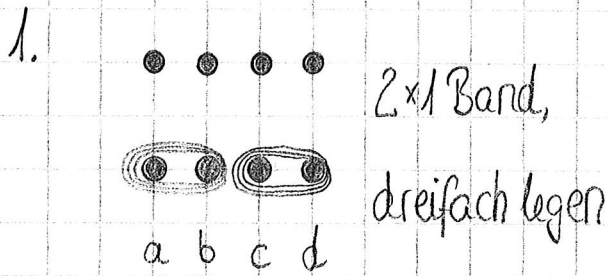 1.
2×1 Band,
dreifach legen
a b c d